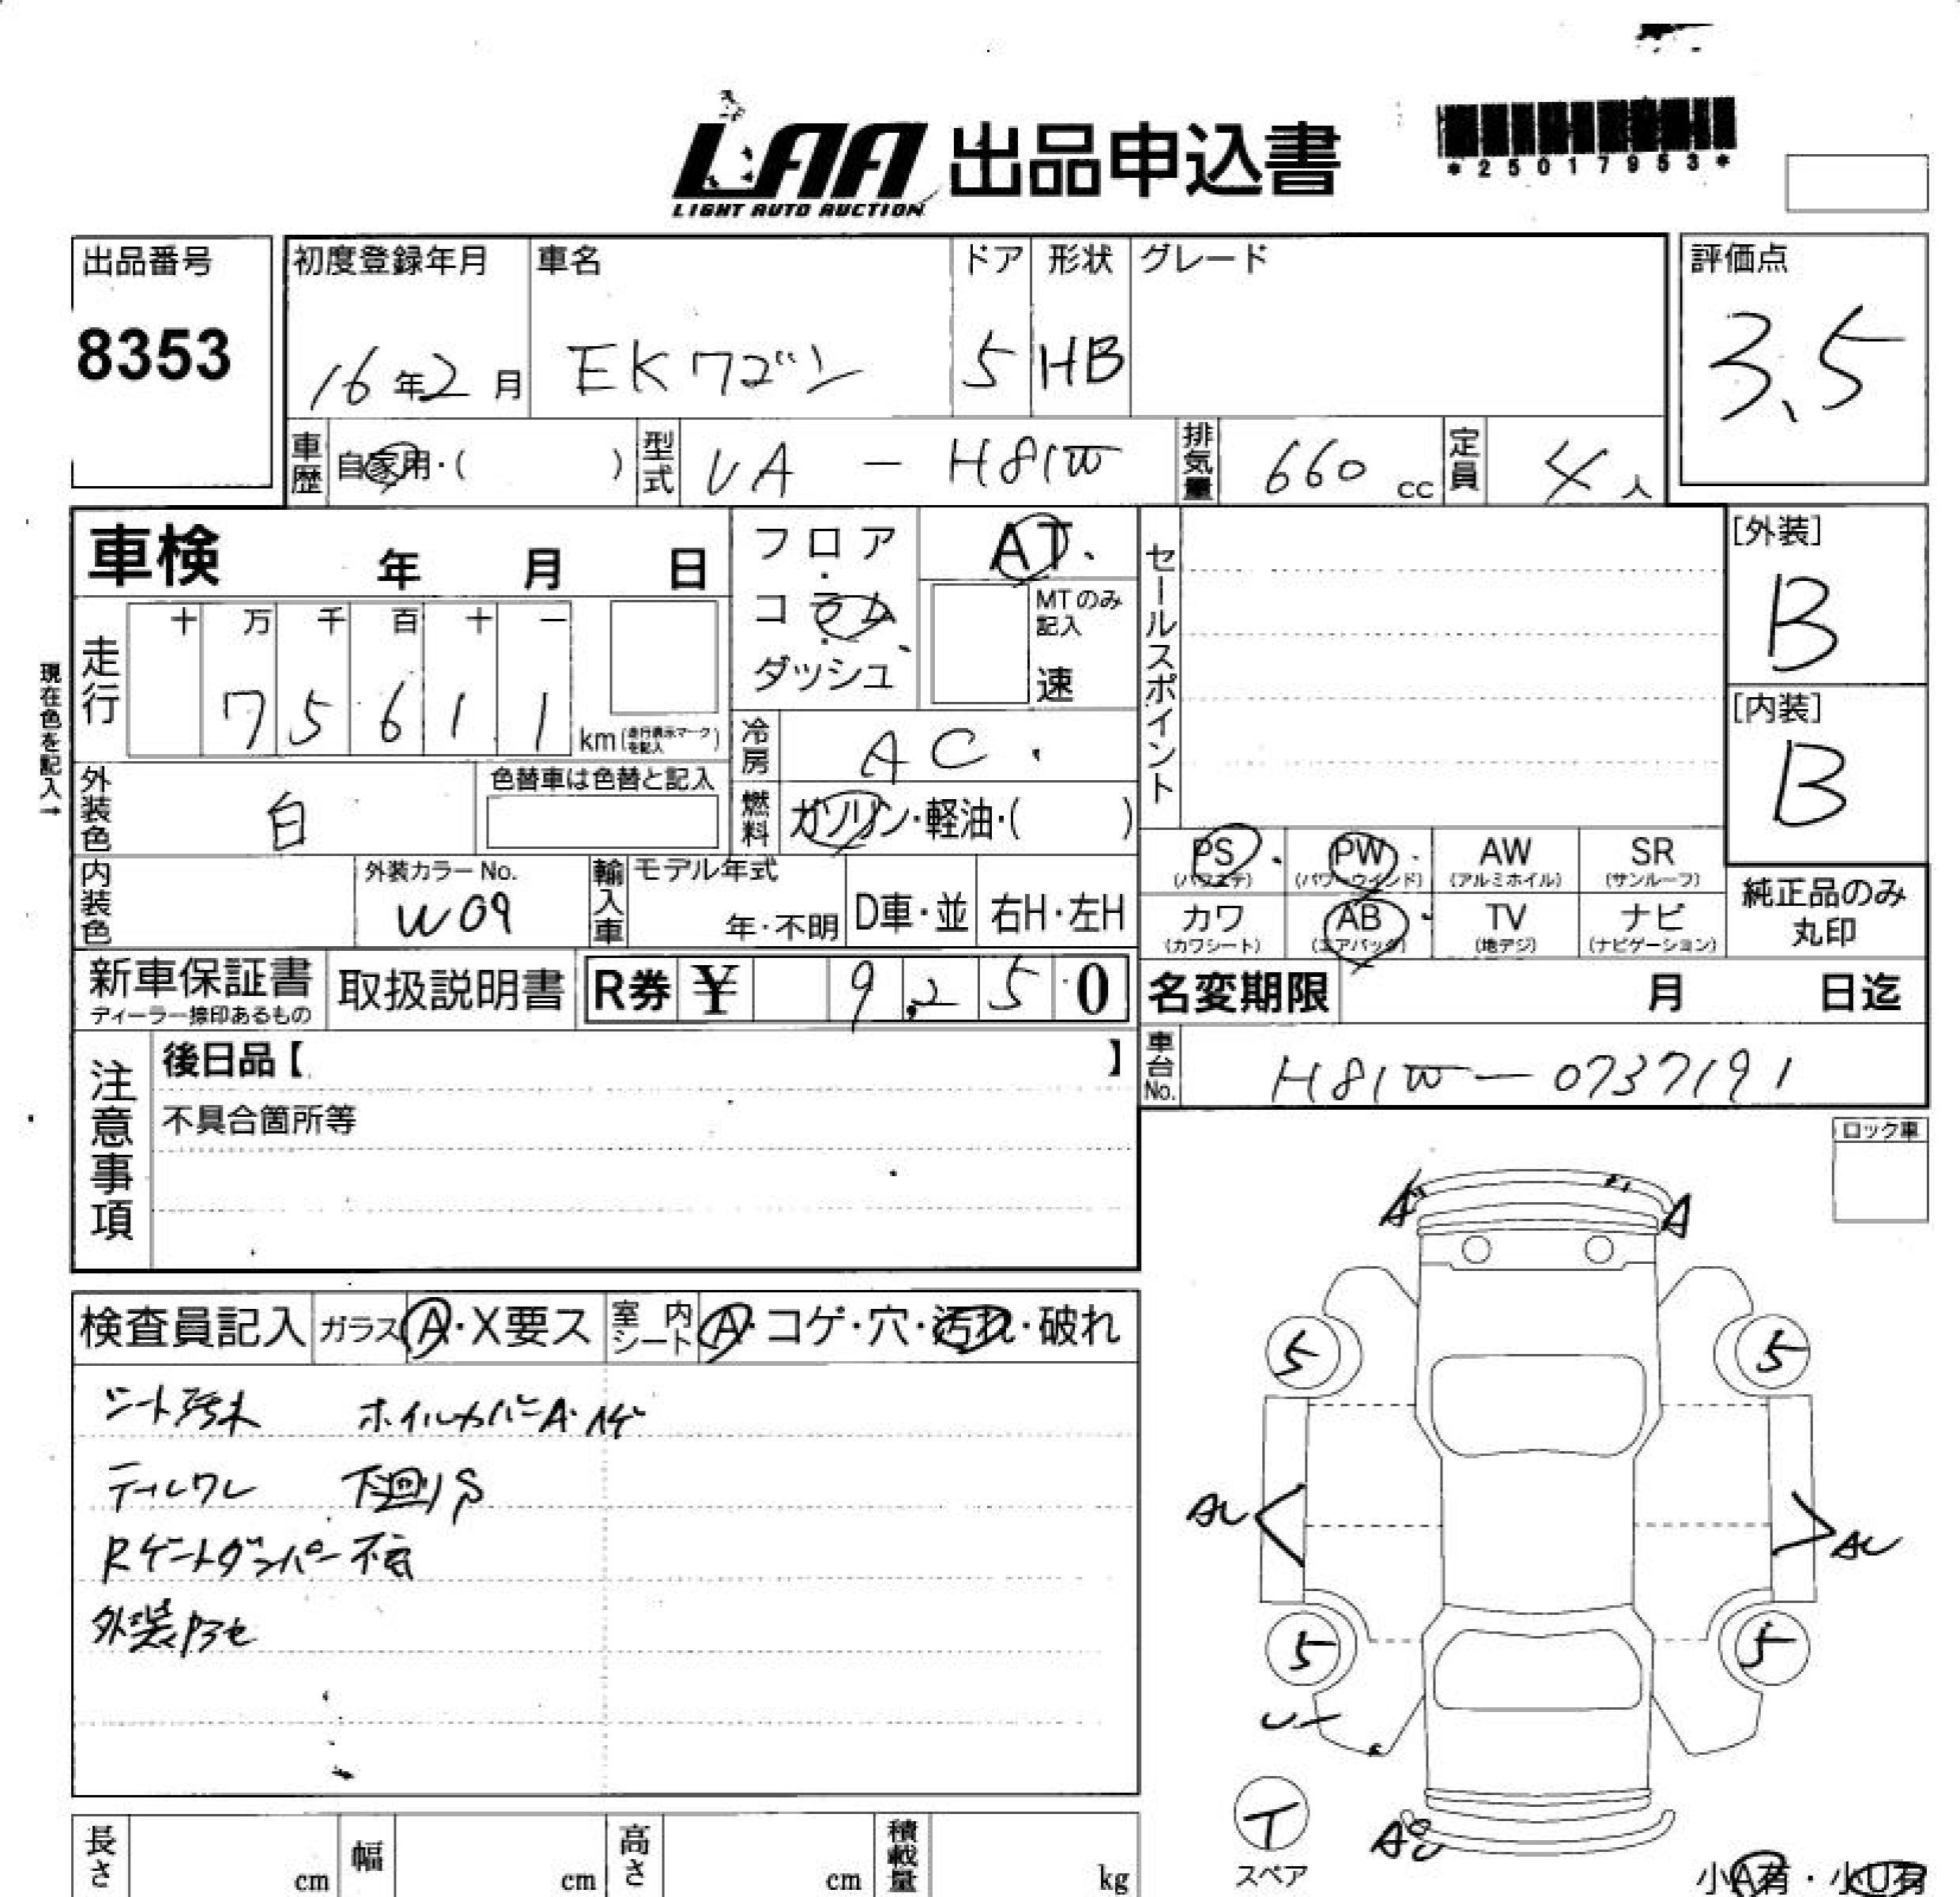 LAA 出品申込書
LIGHT AUTO AUCTION
*25017953*
出品番号
8353
初度登録年月
16年2月
車名
EKワゴン
ドア
5
形状
HB
グレード
評価点
3.5
車歴
自家用・( )
型式
UA - H81W
排気量
660 cc
定員
4人
車検 年 月 日
フロア・コラム・ダッシュ
AT
MTのみ記入
速
セールスポイント
[外装]
B
[内装]
B
現在色を記入→
走行
十 万 千 百 十 一
7 5 6 1 1 km(走行表示マークを記入)
冷房
AC
外装色
白
色替車は色替と記入
燃料
ガソリン・軽油・( )
内装色
外装カラーNo.
W09
輸入車
モデル年式
年・不明
D車・並
右H・左H
PS
(パワステ)
PW
(パワーウインド)
AW
(アルミホイル)
SR
(サンルーフ)
カワ
(カワシート)
AB
(エアバック)
TV
(地デジ)
ナビ
(ナビゲーション)
純正品のみ
丸印
新車保証書
ディーラー捺印あるもの
取扱説明書
R券 ¥ 9,250
名変期限 月 日迄
車台No.
H81W-0737191
注意事項
後日品【 】
不具合箇所等
ロック車
検査員記入
ガラス
A・X要ス
室内シート
A・コゲ・穴・汚れ・破れ
シート汚れ ホイルカバーA・ハゲ
テールワレ 下廻りS
Rゲートダンパー不良
外装アセ
A
A
5
5
AU
AU
5
5
T
スペア
小A有・小U有
長さ cm
幅 cm
高さ cm
積載量 kg